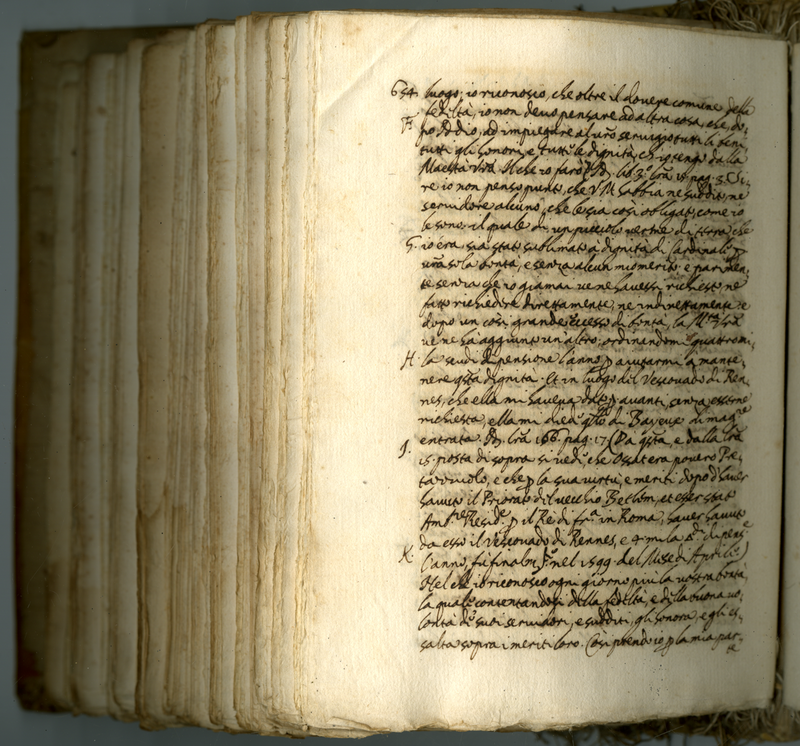 654. luogo; io riconosco, che oltre il dovere comune della
fedeltà, io non devo pensare ad altra cosa, che, do,
F. po Iddio, ad impiegare al vr̃o servizio tutti li beni,
tutti gli honori, e tutte le dignità, ch'io tengo dalla
Maestà Vr̃a. Il che io farò lib. 3. lr̃a 15. pag. 3. Si,
re io non penso punto, che V. M. habbia ne suddito, ne
servidore alcuno, che le sia così obligato, come io
le sono: il quale di un piccolo verme di terra che
G. io era sia stato sublimato à dignità di Cardinale p
vr̃a sola bontà, e senza alcun mio merito: e parimen,
te senza che io giamai ve ne havessi richiesto ne
fatto richiedere direttamente, ne indirettamente: e
dopo un così grande eccesso di bontà, la Mtà Vr̃a
ve ne hà aggiunto un'altro, ordinandomi quattromi,
H. la scudi di pensione l'anno p aiutarmi à mante,
nere qsta dignità. Et in luogo del Vescovado di Ren,
nes, che ella mi haveva dato p avanti, senza esserne
richiesta, ella mi diede qllo di Bayeux di magre
entrata. lr̃a 166. pag. 17. (Da qsta, e dalla lr̃a
I. 15. posta di sopra si vede, che Ossat era povero Pre,
tazzuolo, e che p la sua virtù, e meriti dopo d'haver
havuto il Priorato del vecchio Bellom, et esser stato
Ambre Reside. p il Re di fr.a in Roma, haver havuto
da esso il Vescovado di Rennes, e 4. mila di pense
K. l'anno, fù finalm. nel 1599. del Mese di Aprile.)
Nel che io riconosco ogni giorno più la vostra bontà,
la quale contentandosi della fedeltà, e della buona vo,
lontà de' suoi servidori, e sudditi, gli honora, e gli es,
salta sopra i meriti loro. Così ptendo io p la mia par,
te